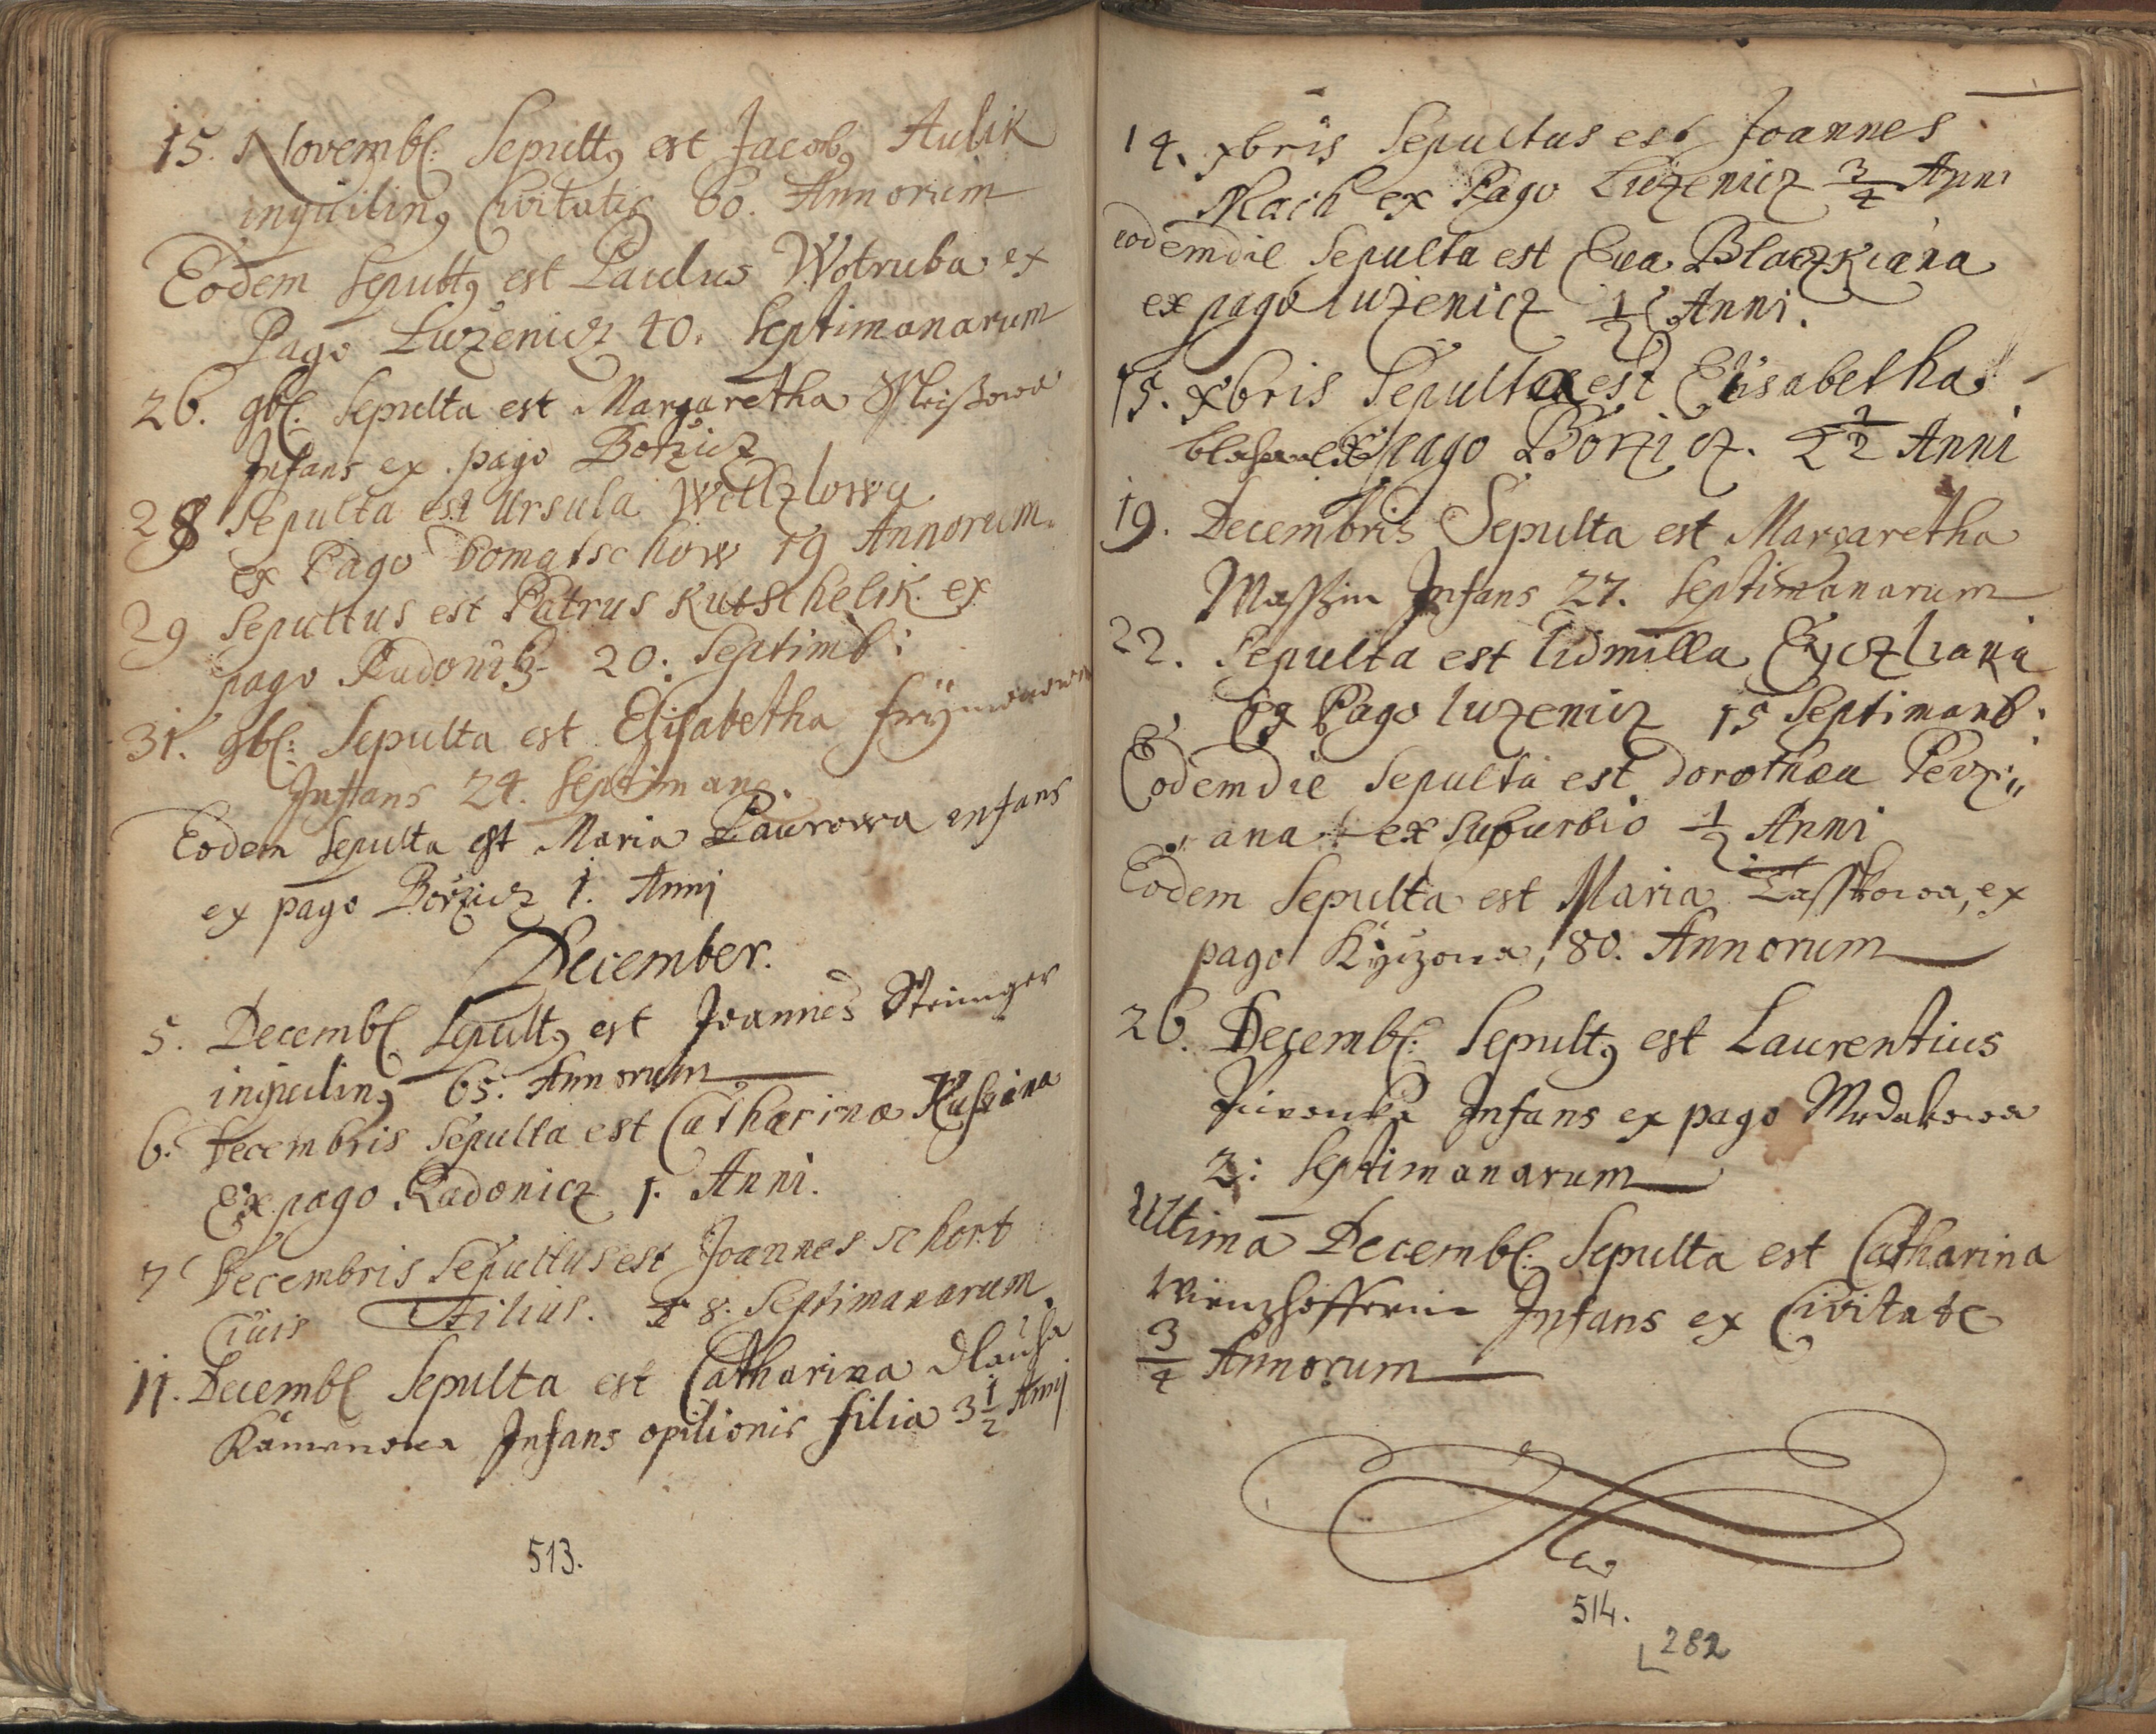 15. Novembr: Sepultꝯ est Jacobꝯ Aulik
inquilinꝯ Civitatis 60. Annorum
Eodem Sepultꝯ est Paulus Wotruba ex
Pago Luzenicz 40. Septimanarum
26. 9br. Sepulta est Margaretha
Infans ex pago Borzicz
28 Sepulta est Ursula
ex Pago Bomatschow 19 Annorum.
29 Sepultus est Patrus Kutschelik ex
pago Radonitz 20. Septimb:
31. 9br: Sepulta est Elisabetha
Infans 24. Septiman.
Eodem Sepulta est Maria Paurowa infans
ex pago Borzicz 1. Annj
December.
5. Decembr Sepultꝯ est Joannes
inquilinꝯ 65. Annorum
6. Decembris Sepulta est Catharina
Ex pago Radonicz 1. Anni.
7 Decembris Sepultus est Joannes schort
Civis filius. 8. Septimanarum.
11. Decembr Sepulta est Catharina Dlauha
Infans opilionis filia 3 1/2 Annj
513.
14. xbris Sepultus est Joannes
Mach ex Pago Luzenicz 3/4 Anni
eodem die Sepulta est Eva Blaczkiana
ex pago luzenicz 1/2 Anni.
15. xbris Sepulta est Elisabetha
ex pago Borzicz. 2 1/2 Anni
19. Decembris Sepulta est Margaretha
Infans 27. Septimanarum
22. Sepulta est Lidmilla
Ex Pago luzenicz 15 Septimanb:
Eodem die Sepulta est Dorothea
ana ex suburbio 1/2 Anni
Eodem Sepulta est Maria ex
pago 80. Annorum
26. Decembr: Sepultꝯ est Laurentius
Infans ex pago Mrdakowa
2: Septimanarum
Ultima Decembr: Sepulta est Catharina
Infans ex Civitate
3/4 Annorum
514.
282